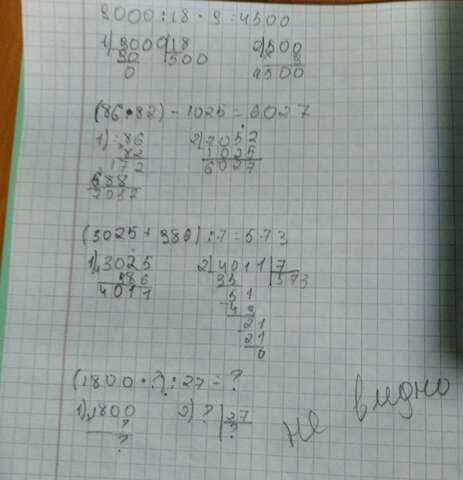 9000:18·9=4500
1) 9000 | 18
90 | 500
0
2) 500
9
4500
(86·82)-1025=6027
1) 86
82
172
688
7052
2) 7052
1025
6027
(3025+986):7=573
1) 3025
986
4011
2) 4011 | 7
35 | 573
51
49
21
21
0
(1800·?):27=?
1) 1800
?
?
2) ? | 27
?
не видно